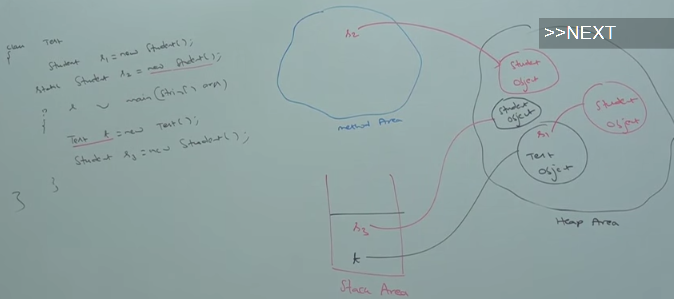 >>NEXT
class Test
{
Student s1 = new Student();
static Student s2 = new Student();
p s v main(String[] args)
{
Test t = new Test();
Student s3 = new Student();
}
}
s2
method Area
Student
Object
Student
Object
Student
Object
s1
Test
Object
Heap Area
s3
t
Stack Area